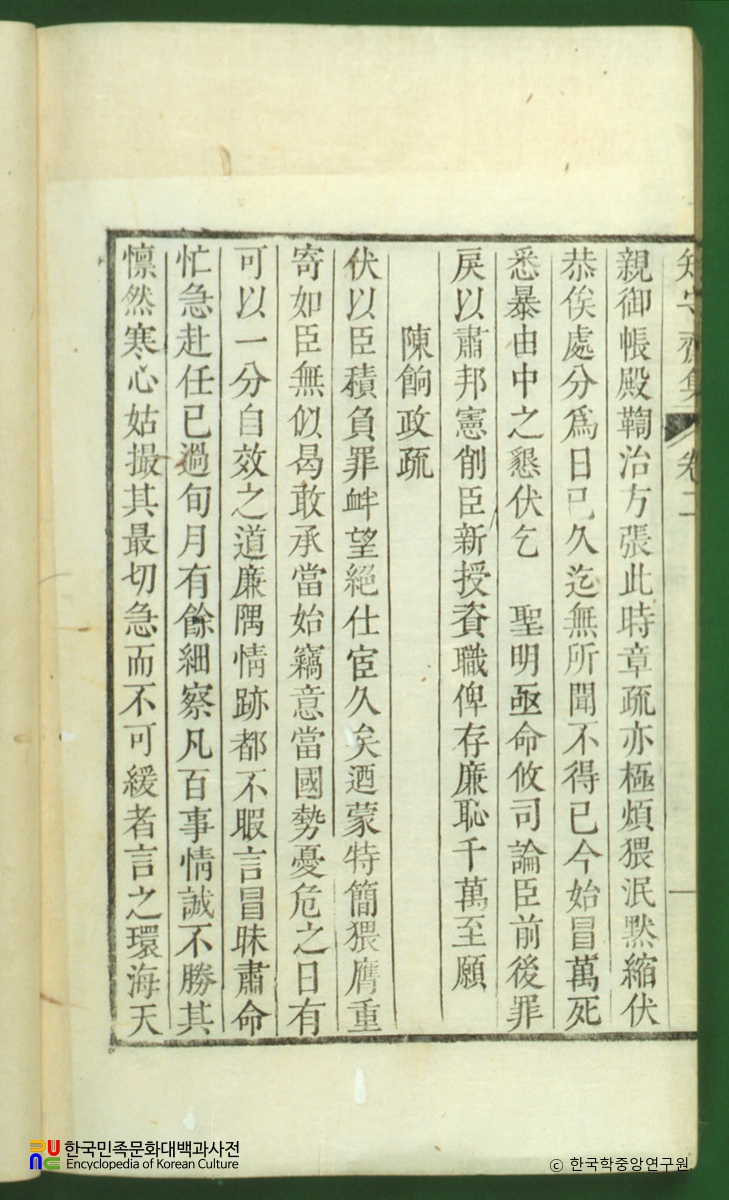 知守齋集 卷二 一
親御帳殿鞫治方張此時章疏亦極煩猥泯默縮伏
恭俟處分爲日已久迄無所聞不得已今始冒萬死
悉暴由中之懇伏乞 聖明亟命攸司論臣前後罪
戾以肅邦憲削臣新授賚職俾存廉恥千萬至願
陳餉政疏
伏以臣積負罪衅望絕仕宦久矣迺蒙特簡猥膺重
寄如臣無似曷敢承當始竊意當國勢憂危之日有
可以一分自效之道廉隅情跡都不暇言冒昧肅命
忙急赴任已過旬月有餘細察凡百事情誠不勝其
懍然寒心姑撮其最切急而不可緩者言之環海天
한국민족문화대백과사전
Encyclopedia of Korean Culture
© 한국학중앙연구원